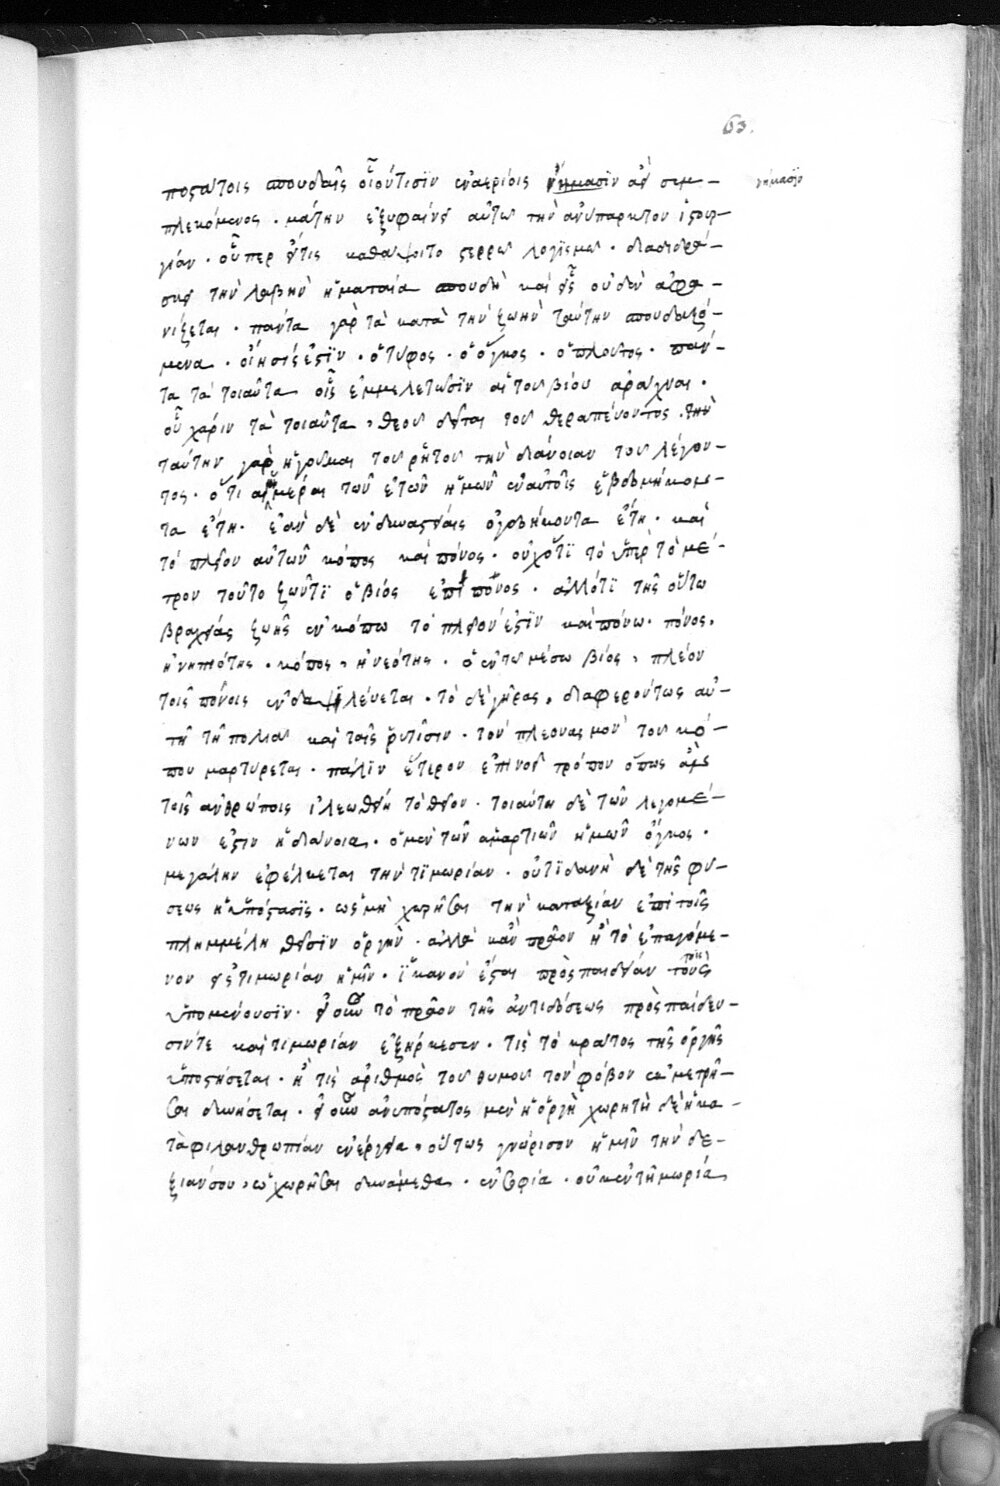 63.
ποστάτοις σπουδαῖς οἷόν τισϊν ἐναερίοις νήμασϊν ἀεὶ συμ- νήμασϊν
πλεκόμενος · μάτην ἐξυφαίνει αὐτῶ τὴν ἀνύπαρκτον ἱστουρ-
γίαν · οὗπερ εἴ τις καθάψοιτο στερρῶ λογϊσμῶ · διαδιδρά-
σκει τὴν λαβὴν ἡ ματαία σπουδὴ καὶ εἰς οὐδὲν ἀφα-
νίζεται · πάντα γὰρ τὰ κατὰ τὴν ζωὴν ταύτην σπουδαζό-
μενα · οἴησίς ἐστϊν · ὁ τύφος · ὁ ὄγκος · ὁ πλοῦτος · πάν-
τα τὰ τοιαῦτα οἷς ἐμμελετῶσϊν αἱ τοῦ βίου ἀράχναι ·
οὗ χάριν τὰ τοιαῦτα, θεοῦ δεῖται τοῦ θεραπεύοντος · τὴν
ταύτην γὰρ ἡγοῦμαι τοῦ ῥητοῦ τὴν διάνοιαν τοῦ λέγον-
τος · ὅτι αἱ ἡμέραι τῶν ἐτῶν ἡμῶν ἐν αὐτοῖς ἑβδομήκον-
τα ἔτη · ἐὰν δὲ ἐν δυναστείαις ὀγδοήκοντα ἔτη · καὶ
τὸ πλεῖον αὐτῶν κόπος καὶ πόνος · οὐχ ὅτϊ τὸ ὑπὲρ τὸ μέ-
τρον τοῦτο ζῶντϊ ὁ βίος ἐπίπονος · ἀλλ' ὅτϊ τῆς οὕτω
βραχείας ζωῆς ἐν κόπω τὸ πλεῖόν ἐστϊν καὶ πόνω · πόνος,
ἡ νηπιότης · κόπος, ἡ νεότης · ὁ ἐν τῶ μέσω βίος, πλέον
τοῖς πόνοις ἐνδαψιλεύεται · τὸ δὲ γῆρας, διαφερούντως αὐ-
τῆ τῆ πολιᾶ καὶ ταῖς ῥυτίσιν · τὸν πλεονασμὸν τοῦ κό-
που μαρτύρεται · πάλϊν ἕτερον ἐπινοεῖ τρόπον ὅπως ἂν
τοῖς ἀνθρώποις ἱλεωθείη τὸ θεῖον · τοιαύτη δὲ τῶν λεγομέ-
νων ἐστιν ἡ διάνοια · ὁ μὲν τῶν ἁμαρτιῶν ἡμῶν ὄγκος ·
μεγάλην ἐφέλκεται τὴν τϊμωρίαν · οὐτϊδανὴ δὲ τῆς φύ-
σεως ἡ ὑπόστασϊς · ὡς μὴ χωρῆσαι τὴν κατ' ἀξίαν ἐπὶ τοῖς
πλημμεληθεῖσϊν ὀργήν · ἀλλὰ κἂν πρᾶον ἦ τὸ ἐπαγόμε-
νον εἰς τιμωρίαν ἡμῖν · ϊκανὸν ἔσται πρὸς παιδείαν τοῖς
ὑπομένουσϊν · εἰ οὖν τὸ πρᾶον τῆς ἀντιδόσεως πρὸς παίδευ-
σίν τε καὶ τιμωρίαν ἐξήρκεσεν · τίς τὸ κράτος τῆς ὀργῆς
ὑποστήσεται · ἢ τίς ἀριθμὸς τοῦ θυμοῦ τὸν φόβον ἐκμετρῆ-
σαι δυνήσεται · εἰ οὖν ἀνυπόστατος μὲν ἡ ὀργὴ χωρητὴ δὲ ἡ κα-
τὰ φιλανθρωπίαν ἐνέργεια, οὕτως γνώρισον ἡμῖν τὴν δε-
ξιάν σου, ὡς χωρῆσαι δυνάμεθα · ἐν σοφία · οὐκ ἐν τιμωρία